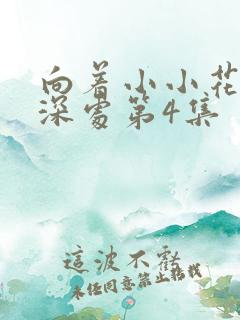 向着小小花
深處第4集
這波不虧
未经同意禁止转载